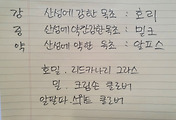 강 산성에 강한 목초 : 호리
중 산성에 약간강한목초 : 밀크
약 산성에 약한 목초 : 알프스
호밀. 리드카나리 그라스
밀. 크림손 클로버
알팔파 스위트 클로버